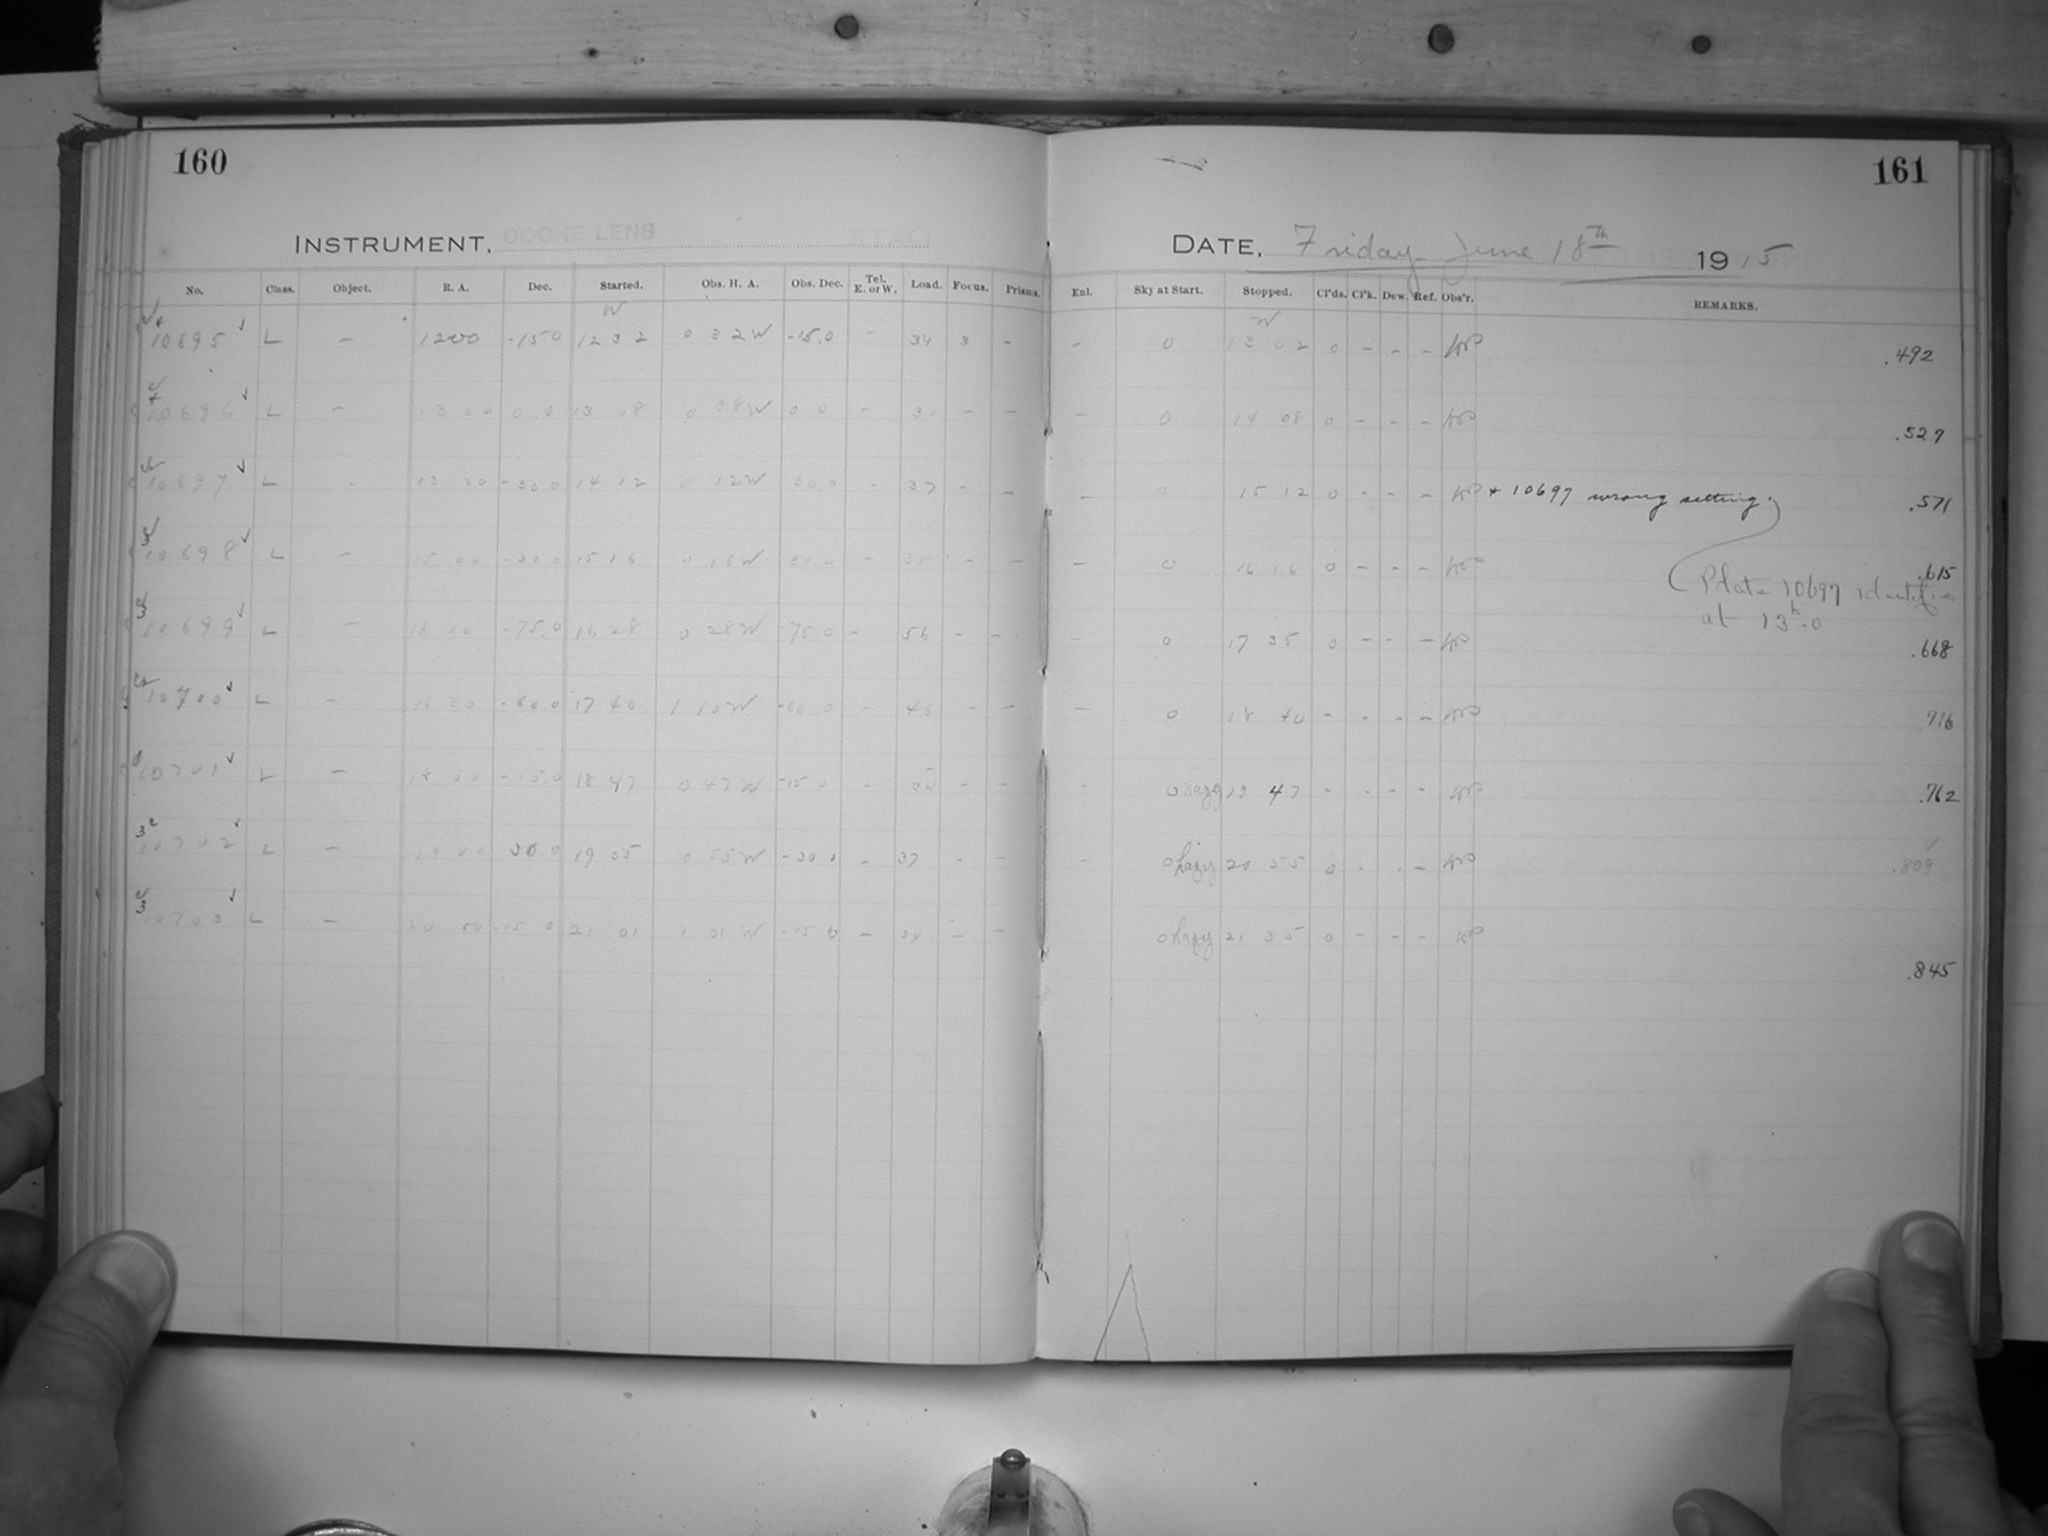 160
161
INSTRUMENT, COOKE LENS
DATE, Friday June 18th 1915
No. Class. Object. R. A. Dec. Started. Obs. H. A. Obs. Dec. Tel. E. or W. Load. Focus. Prisms.
Enl. Sky at Start. Stopped. Cl'ds. Cl'k. Dew. Ref. Obs'r. REMARKS.
10695 L – 1200 -15.0 12 32 0 32W -15.0 – 34 3 – – 0 13 02 0 – – – .492
10696 L – 13 00 0.0 13 08 0 08W 0 0 – 31 – – – 0 14 08 0 – – – .527
10697 L – -30 0 14 12 0 12W 30.0 – 37 – – – 0 15 12 0 – – – + 10697 wrong setting. .571
10698 L – 15 00 -30.0 15 16 0 16W -30.0 – – – – 0 16 16 0 – – – .615
(Plate 10697 identifies
at 13h.0
10699 L – 16 00 -75.0 16 28 0 28W -75.0 – 56 – – – 0 17 35 0 – – – .668
10700 L – 16 30 -60 0 17 40 1 10W -60.0 – 46 – – – 0 18 40 – – – – 716
10701 L – 18 00 -15.0 18 47 0 47W -15 0 – – – – 0 hazy 19 47 – – – – .762
10702 L – 19 00 30 0 19 55 0 55W -30.0 – 37 – – – 0 hazy 20 55 0 – – – .809
10703 L – 20 00 -15 0 21 01 1 01 W -15 0 – 34 – – 0 hazy 21 35 0 – – –
.845